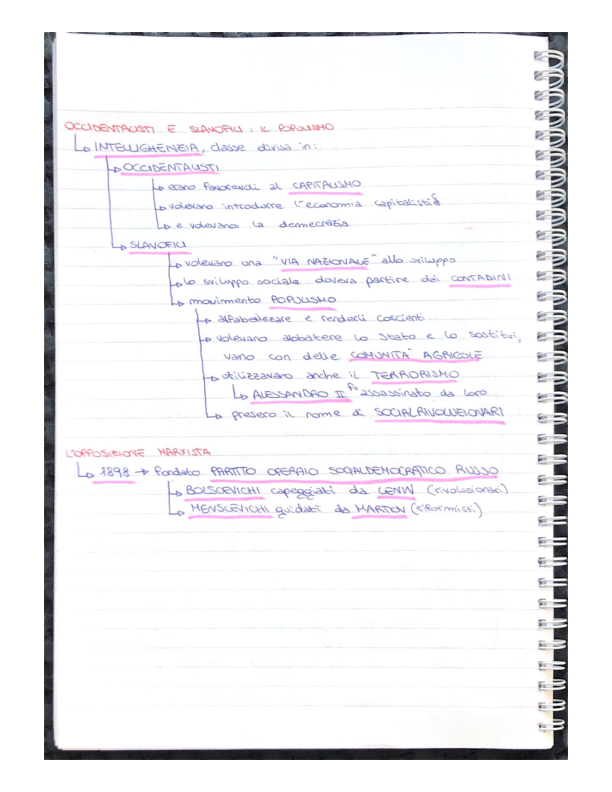 OCCIDENTALISTI E SLAVOFILI : IL POPULISMO
INTELLIGHENZIA, classe divisa in:
OCCIDENTALISTI
erano favorevoli al CAPITALISMO
volevano introdurre l'economia capitalistia
e volevano la democrazia
SLAVOFILI
volevano una "VIA NAZIONALE" allo sviluppo
lo sviluppo sociale doveva partire dai CONTADINI
movimento POPULISMO
alfabetizzare e renderli coscienti
volevano abbattere lo Stato e lo sostitui,
vano con delle COMUNITA' AGRICOLE
utilizzavano anche il TERRORISMO
ALESSANDRO II fu assassinato da loro
presero il nome di SOCIALRIVOLUZIONARI
L'OPPOSIZIONE MARXISTA
1898 → fondato PARTITO OPERAIO SOCIALDEMOCRATICO RUSSO
BOLSCEVICHI capeggiati da LENIN (rivoluzionari)
MENSCEVICHI guidati da MARTOV (riformisti)